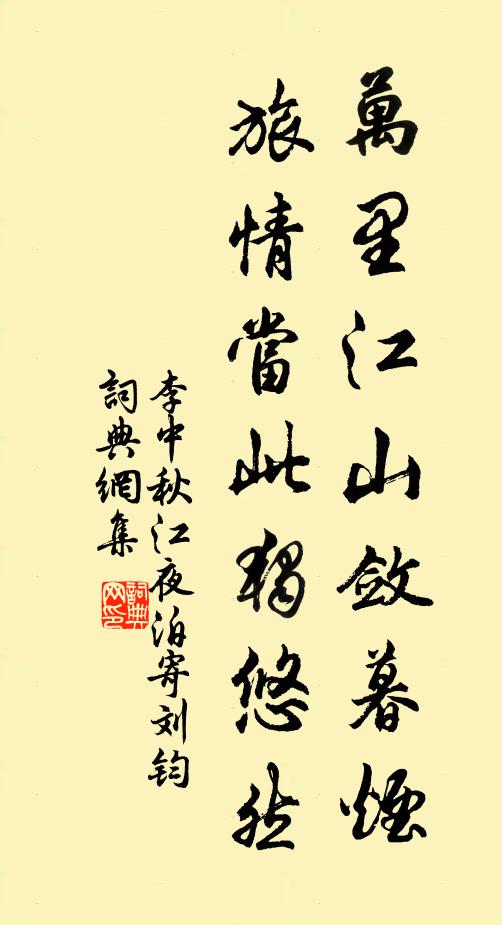 萬里江山斂暮煙
旅情當此獨悠然
李中秋江夜泊寄刘鈞
詞典網集
詞典
网印